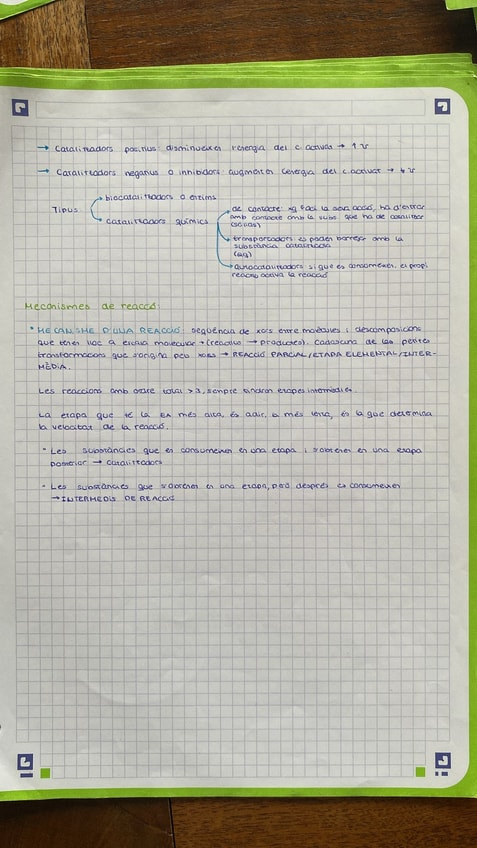 → Catalitzadors positius: disminueixen l'energia del c. activat → ↑ v
→ Catalitzadors negatius o inhibidors: augmenten l'energia del c. activat → ↓ v
Tipus:
biocatalitzadors o enzims
catalitzadors químics
de contacte: xq faci la seva acció, ha d'entrar
amb contacte amb la subs. que ha de catalitzar
(sòlids)
transportadors: es poden barrejar amb la
substància catalitzada
(aq)
autocatalitzadors: si que es consumeixen. el propi
reactiu activa la reacció
Mecanismes de reacció:
• MECANISME D'UNA REACCIÓ: seqüència de xocs entre molècules i descomposicions
que tenen lloc a escala molecular (reactius → productes). Cadascuna de les petites
transformacions que s'origina pels xocs → REACCIÓ PARCIAL/ETAPA ELEMENTAL/INTER-
MÈDIA.
Les reaccions amb ordre total >3, sempre tindran etapes intermèdies.
La etapa que té la EA més alta, és a dir, la més lenta, és la que determina
la velocitat de la reacció.
• Les substàncies que es consumeixen en una etapa i s'obtenen en una etapa
posterior → catalitzadors
• Les substàncies que s'obtenen en una etapa, però després es consumeixen
→ INTERMEDIS DE REACCIÓ